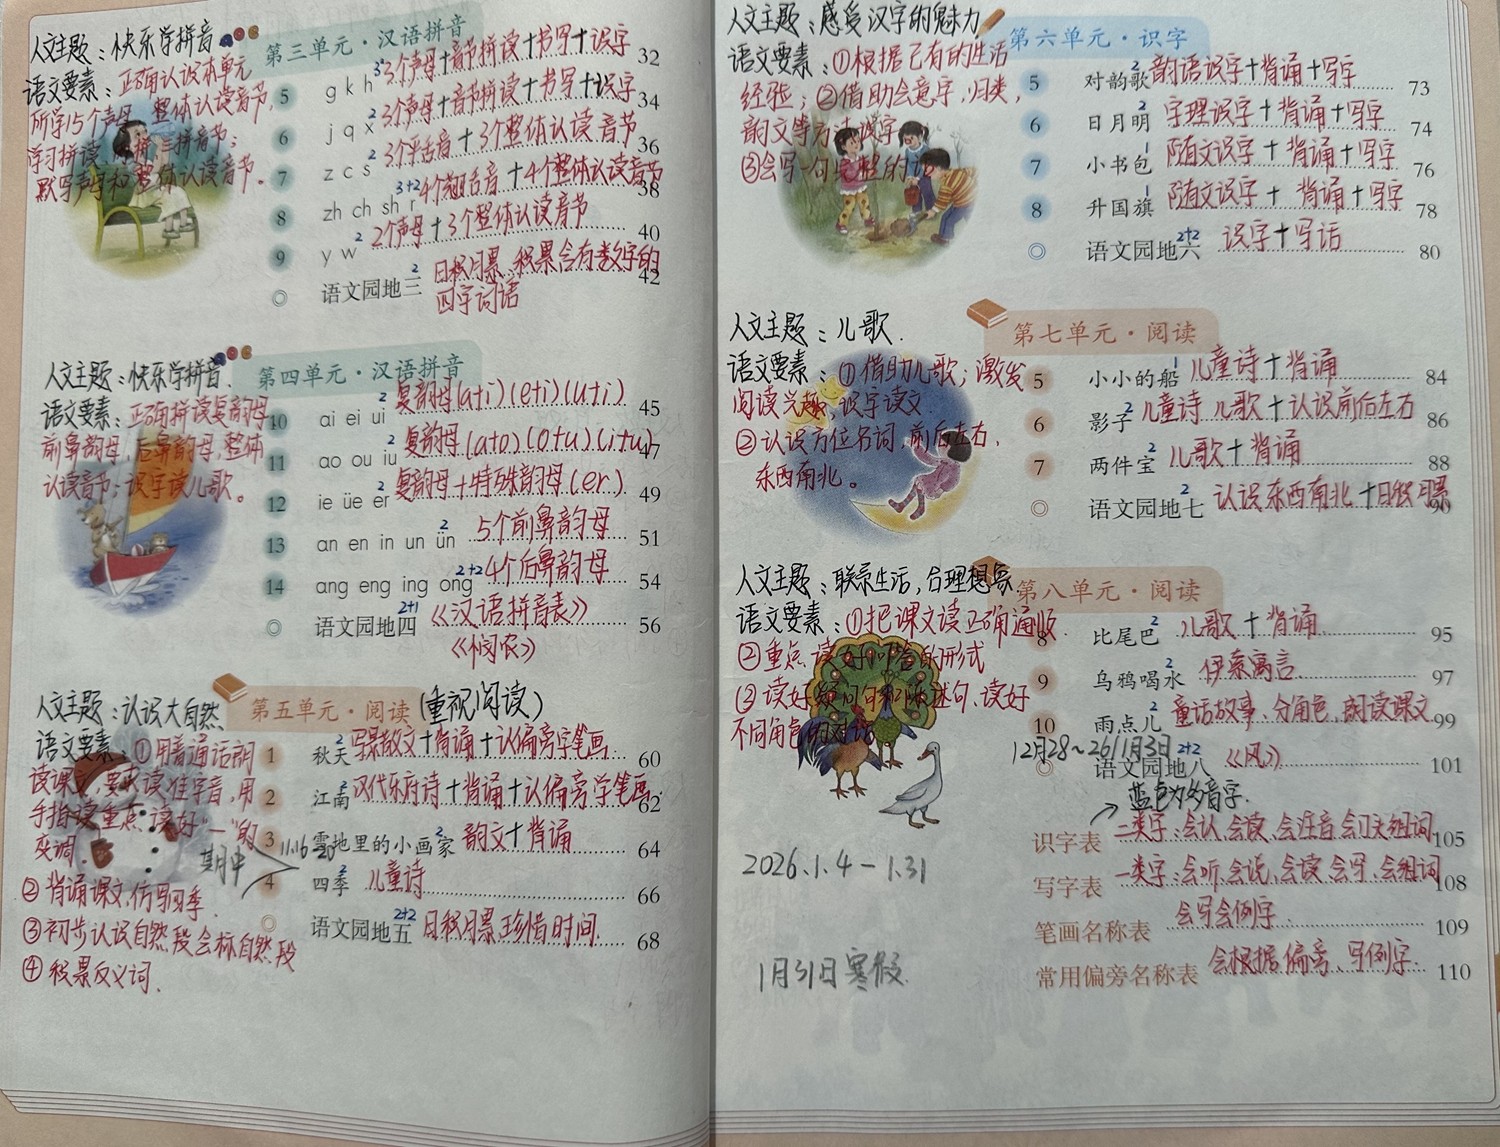 人文主题：快乐学拼音
第三单元·汉语拼音
语文要素：正确认读本单元
所学15个声母、整体认读音节，
学习拼读 三拼音节；
默写声母和整体认读音节。
5 g k h 3 3个声母+音节拼读+书写+识字 32
6 j q x 2 3个声母+音节拼读+书写+识字 34
7 z c s 2 3个平舌音+3个整体认读音节 36
8 zh ch sh r 3+2 4个翘舌音+4个整体认读音节 38
9 y w 2 2个声母+3个整体认读音节 40
◎ 语文园地三 2 日积月累、积累含有数字的 42
四字词语
人文主题：快乐学拼音.
第四单元·汉语拼音
语文要素：正确拼读复韵母
前鼻韵母，后鼻韵母，整体
认读音节；识字读儿歌。
10 ai ei ui 2 复韵母(a+i)(e+i)(u+i) 45
11 ao ou iu 2 复韵母(a+o)(o+u)(i+u) 47
12 ie üe er 2 复韵母+特殊韵母(er) 49
13 an en in un ün 2 5个前鼻韵母 51
14 ang eng ing ong 2+2 4个后鼻韵母 54
◎ 语文园地四 2+1 《汉语拼音表》 56
《悯农》
人文主题：认识大自然
第五单元·阅读(重视阅读)
语文要素：①用普通话朗
读课文，要求读准字音，用
手指读重点 读好“一”的
变调.
②背诵课文，仿写四季.
③初步认识自然段会标自然段
④积累反义词.
1 秋天 2 写景散文+背诵+认偏旁字笔画 60
2 江南 2 汉代乐府诗+背诵+认偏旁字笔画. 62
3 雪地里的小画家 2 韵文+背诵 64
期中 11.16-20
4 四季 2 儿童诗 66
◎ 语文园地五 2+2 日积月累珍惜时间. 68
人文主题：感受汉字的魅力
第六单元·识字
语文要素：①根据已有的生活
经验；②借助会意字，归类，
韵文等方法识字
③会写一句完整的话
5 对韵歌 2 韵语识字+背诵+写字 73
6 日月明 2 字理识字+背诵+写字 74
7 小书包 1 随文识字+背诵+写字 76
8 升国旗 1 随文识字+背诵+写字 78
◎ 语文园地六 2+2 识字+写话 80
人文主题：儿歌.
第七单元·阅读
语文要素：①借助儿歌；激发
阅读兴趣，识字读文
②认识方位名词，前后左右，
东西南北。
5 小小的船 1 儿童诗+背诵 84
6 影子 2 儿童诗 儿歌+认识前后左右 86
7 两件宝 2 儿歌+背诵 88
◎ 语文园地七 2 认识东西南北+日积月累 90
人文主题：联系生活，合理想象
第八单元·阅读
语文要素：①把课文读正确通顺.
②重点读好 的形式
③读好疑问句和陈述句、读好
不同角色的对话
8 比尾巴 2 儿歌+背诵 95
9 乌鸦喝水 2 伊索寓言 97
10 雨点儿 2 童话故事、分角色，朗读课文 99
12月28~26/1月3日
◎ 语文园地八 2+2 《风》 101
蓝色为多音字.
识字表 二类字：会认、会读、会注音、会口头组词 105
写字表 一类字：会听、会说、会读、会写、会组词 108
笔画名称表 会写会例字 109
常用偏旁名称表 会根据偏旁、写例字 110
2026.1.4-1.31
1月31日寒假